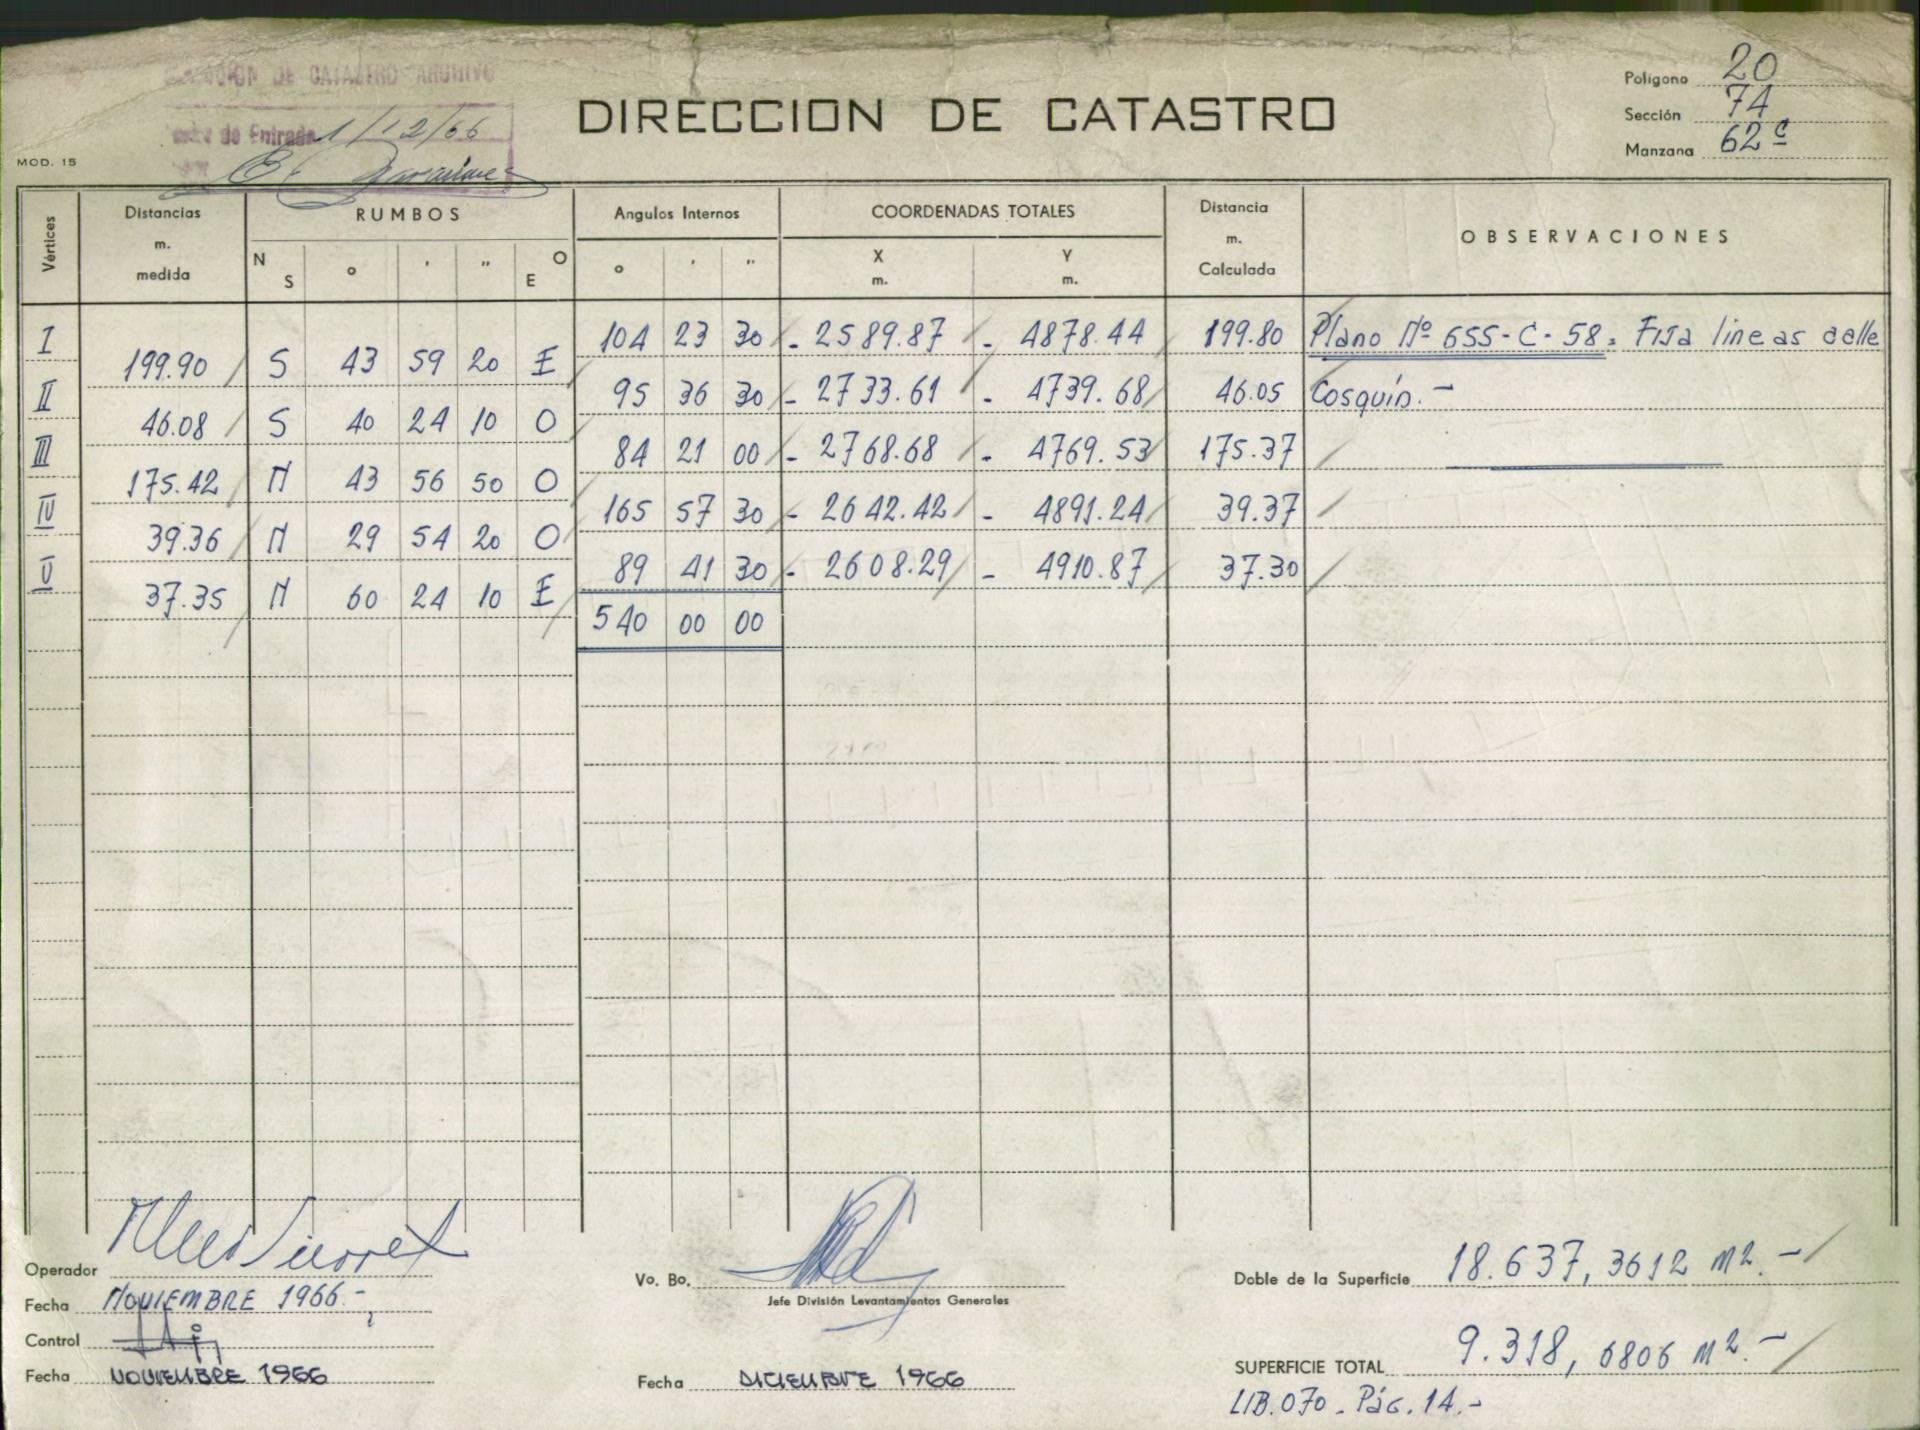 DIRECCION DE CATASTRO ARCHIVO
de Entrada 1/12/66
MOD. 15
DIRECCION DE CATASTRO
Polígono 20
Sección 74
Manzana 62 c
Vértices
Distancias m. medida
RUMBOS
N S ° ' " O E
Angulos Internos
° ' "
COORDENADAS TOTALES
X m. Y m.
Distancia m. Calculada
OBSERVACIONES
I 104 23 30 - 2589.87 - 4878.44 199.80 Plano Nº 655-C-58. Fija lineas calle
199.90 S 43 59 20 E
II 95 36 30 - 2733.61 - 4739.68 46.05 Cosquín.-
46.08 S 40 24 10 O
III 84 21 00 - 2768.68 - 4769.53 175.37
175.42 N 43 56 50 O
IV 165 57 30 - 2642.42 - 4891.24 39.37
39.36 N 29 54 20 O
V 89 41 30 - 2608.29 - 4910.87 37.30
37.35 N 60 24 10 E
540 00 00
Operador
Fecha NOVIEMBRE 1966.-
Control
Fecha NOVIEMBRE 1966
Vo. Bo.
Jefe División Levantamientos Generales
Fecha DICIEMBRE 1966
Doble de la Superficie 18.637,3612 m2.-
SUPERFICIE TOTAL 9.318,6806 m2.-
LIB.070. Pág.14.-